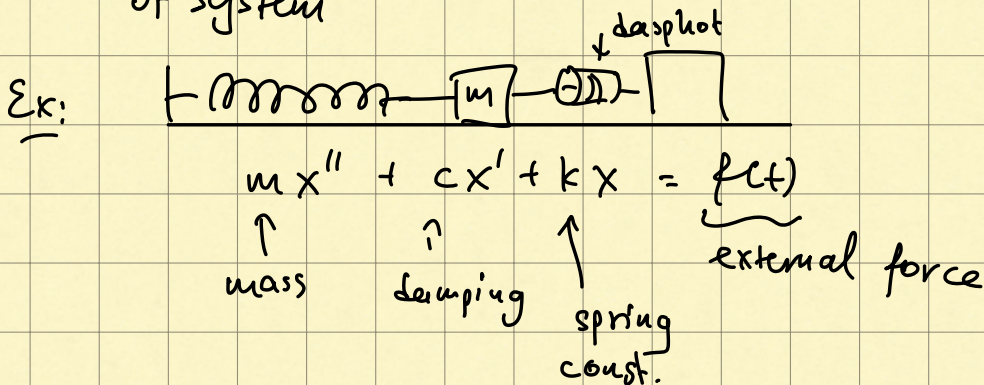 of system
dasphot
Ex:
m
m x'' + c x' + k x = f(t)
mass
damping
spring
const.
external force